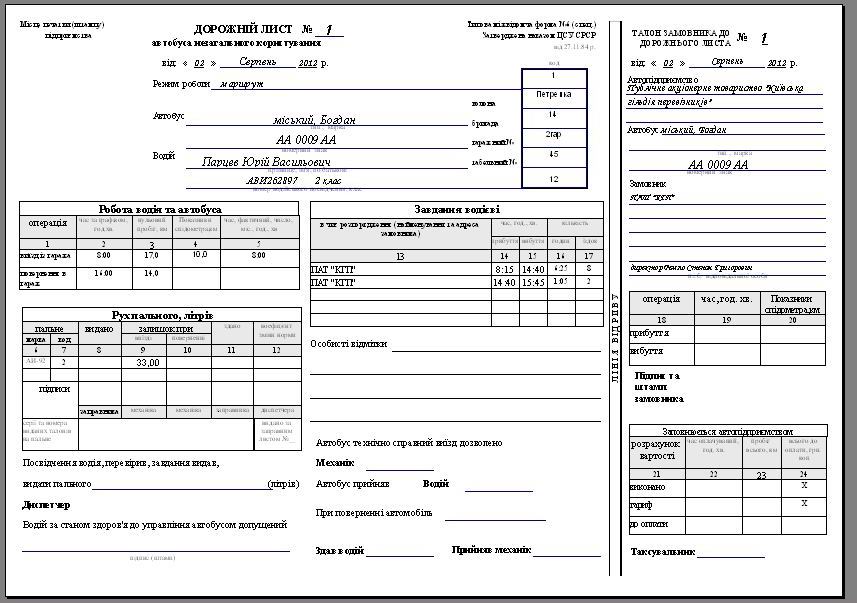 Місце печатки(штампу)
підприємства
ДОРОЖНІЙ ЛИСТ № 1
автобуса незагального користування
Типова міжвідомча форма №6 (спец.)
Затверджена наказом ЦСУ СРСР
від 27.11.84 р.
від « 02 » Серпень 2012 р.
код
Режим роботи маршрут
1
Петренка
колона
14
Автобус міський, Богдан
бригада
тип, марка
2гар
АА 0009 АА
гаражний №
номерний знак
45
Водій Парцев Юрій Васильович
табельний №
прізвище, імя, по батькові
АВИ262897 2 клас
12
Робота водія та автобуса
операція
час за графіком, год.хв.
нульовий пробіг, км
Показники спідометра,км
час, фактичний, число, міс., год., хв
1 2 3 4 5
виїзд з гаража 8:00 17,0 10,0 8:00
повернення в гараж 16:00 14,0
Завдання водієві
в чиє розпорядження (найменування та адреса замовника)
час, год., хв.
кількість
прибуття вибуття годин їздок
13 14 15 16 17
ПАТ "КГП" 8:15 14:40 6:25 8
ПАТ "КГП" 14:40 15:45 1:05 2
Рух пального, літрів
пальне видано залишок при здано коефіцієнт зміни норми
марка код виїзді поверненні
6 7 8 9 10 11 12
АИ-92 2 33,00
підписи
заправника механіка механіка заправника диспетчера
серії та номера виданих талонів на пальне
видано за заправним листом №
Особисті відмітки
Посвідчення водія, перевірив, завдання видав,
видати пального (літрів)
Диспетчер
Водій за станом здоров'я до управління автобусом допущений
підпис (штамп)
Автобус технічно справний виїзд дозволено
Механік
Автобус прийняв Водій
При поверненні автомобіль
Здав водій Прийняв механік
ЛІНІЯ ВІДРИВУ
ТАЛОН ЗАМОВНИКА ДО
ДОРОЖНЬОГО ЛИСТА № 1
від « 02 » Серпень 2012 р.
Автопідприємство
Публічне акціонерне товариство "Київська
гільдія перевізників"
Автобус міський, Богдан
тип, марка
АА 0009 АА
номерний знак
Замовник
операція час,год. хв. Показники спідометра,км
18 19 20
прибуття
вибуття
Підпис та
штамп
замовника
Заповнюється автопідприємством
розрахунок вартості
час оплачуваний, год., хв.
пробіг всього, км
всього до оплати, грн. коп
21 22 23 24
виконано X
тариф X
до оплати
Таксувальник